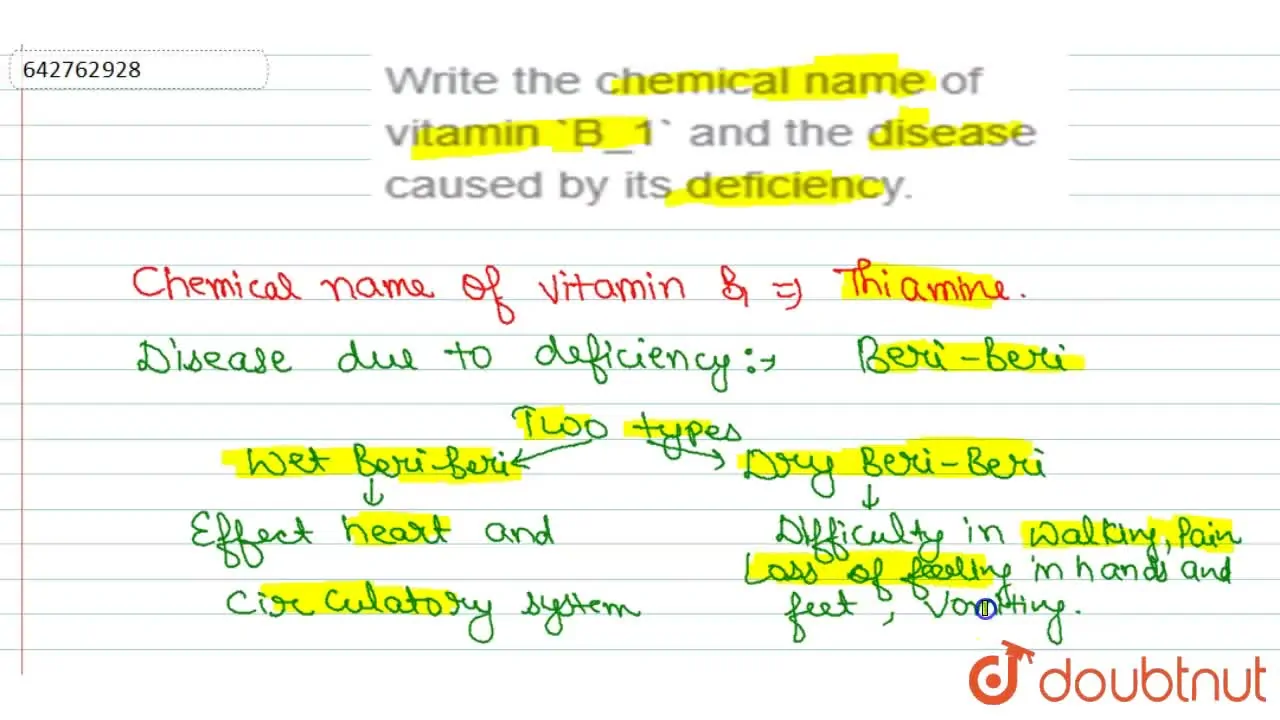 642762928
Write the chemical name of
vitamin `B_1` and the disease
caused by its deficiency.
Chemical name of vitamin B1 => Thiamine.
Disease due to deficiency :→ Beri-Beri
Two types
Wet Beri-Beri Dry Beri-Beri
Effect heart and Difficulty in walking, Pain
Loss of feeling in hands and
circulatory system feet, Vomitting.
doubtnut